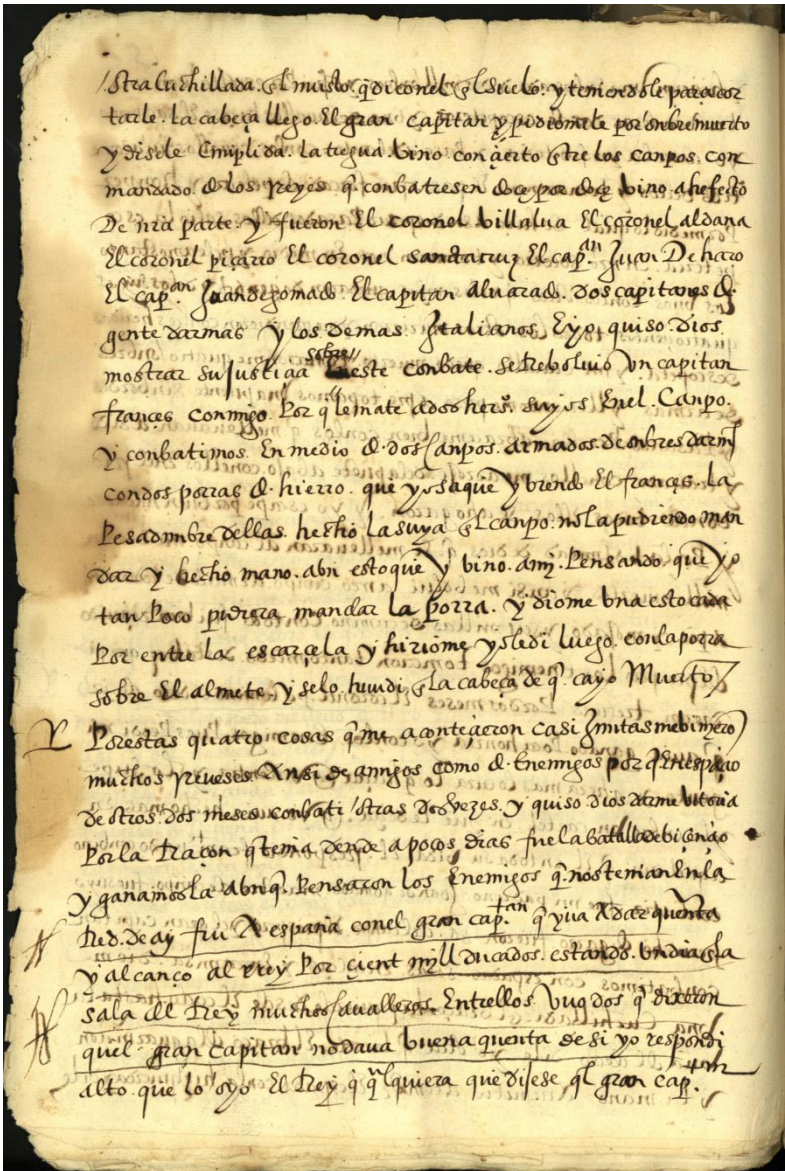 otra cuchillada. en el muslo. q̃ di con el en el suelo. y teniendole para cor
tarle. la cabeça llego. El gran capitan y pidiomele por onbre muerto
y disele Cunplida. la tregua. bino conçierto entre los canpos. con
mandado. de los Reyes q̃ conbatiesen doçe por doçe bino a hefecto
De nr̃a parte. y fueron El coronel billalua El coronel aldana
El coronel piçarro El coronel sanctacruz El cap.an Juan De haro
El cap.an Juan de gomado. El capitan Aluarado. dos capitanes de.
gente darmas y los demas. Italianos, E yo, quiso. dios
mostrar su Justiçia sobre este conbate. se Reboluio Vn capitan
françes conmigo. Por q̃ le mate a dos heros. suyos En el. Canpo.
y conbatimos. En medio de. dos Canpos. armados. de onbres darmas
con dos porras de. hierro. que yo saque y biendo El françes. la
Pesadunbre dellas. hecho la suya en el canpo. no la pudiendo man
dar y hecho mano. a bn estoque y bino. a mj. Pensando. que yo
tan Poco pudiera mandar la porra. y diome bna estocada
Por entre la escarçela y hiriome y o le di luego. con la porra
sobre El almete. y se lo. hundi en la cabeça de q̃. cayo Muerto
Por estas quatro cosas q̃ me aconteçieron casi Juntas me binyero
muchos Reueses Ansi de amigos como de. Enemigos por q̃ En espaçio
de otros dos meses conbati otras dos vezes. y quiso dios darme bitoria
Por la Raçon q̃ tenia dende a pocos, dias fue la batalla de biçençio
y ganamosla abnq̃. Pensaron los Enemigos q̃. nos tenian En la
Red. de ay fui A españa con el gran cap.tan q̃ yua A dar quenta
y alcanço al rrey Por çient mjll ducados. estando. bn dia en la
sala del Rey muchos Caualleros. Entrellos Vuo dos q̃ dixeron
quel. gran Capitan no daua buena quenta de si yo respondi
alto que lo oyo El Rey q̃ q̃lquiera que disese ql gran cap.tan